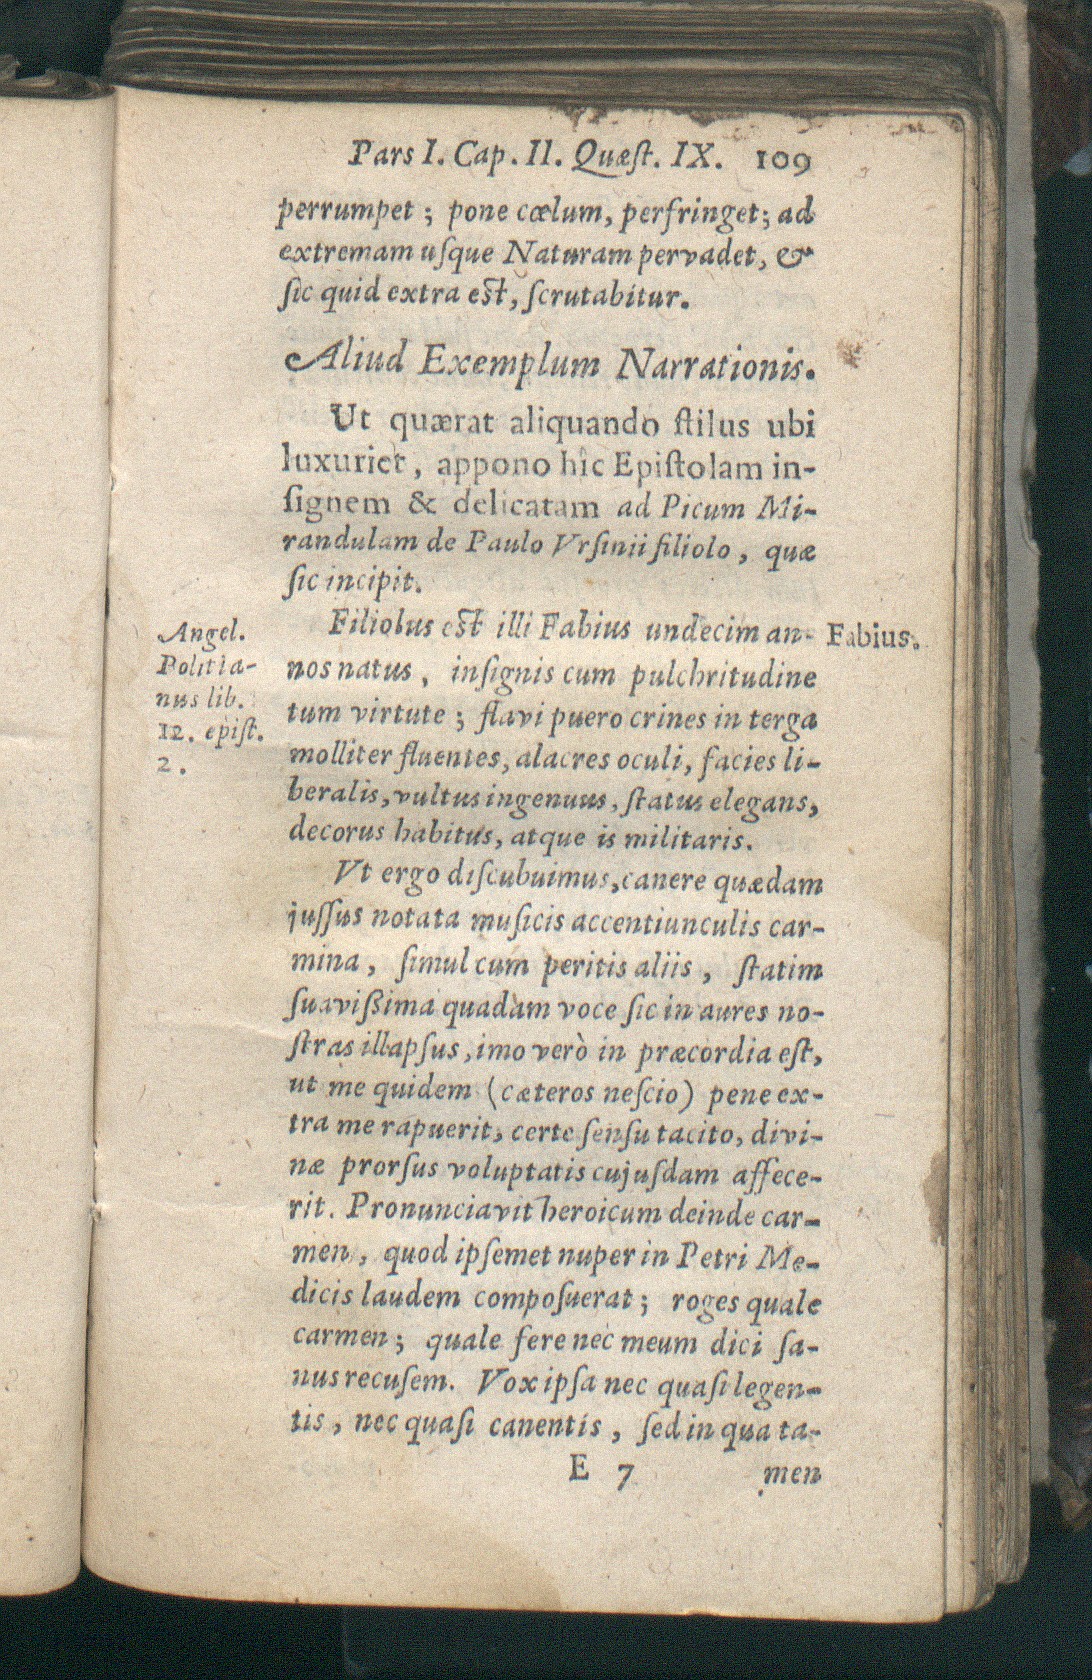 Pars I. Cap. II. Quæſt. IX. 109
perrumpet ; pone cœlum, perfringet; ad
extremam uſque Naturam pervadet, &
ſic quid extra eſt, ſcrutabitur.
Aliud Exemplum Narrationis.
Ut quærat aliquando ſtilus ubi
luxuriet, appono hîc Epiſtolam in-
ſignem & delicatam ad Picum Mi-
randulam de Paulo Vrſinii filiolo, quæ
ſic incipit.
Filiolus eſt illi Fabius undecim an-
nos natus, inſignis cum pulchritudine
tum virtute ; flavi puero crines in terga
molliter fluentes, alacres oculi, facies li-
beralis, vultus ingenuus, ſtatus elegans,
decorus habitus, atque is militaris.
Vt ergo diſcubuimus, canere quædam
juſſus notata muſicis accentiunculis car-
mina, ſimul cum peritis aliis, ſtatim
ſuavißima quadam voce ſic in aures no-
ſtras illapſus, imo verò in præcordia eſt,
ut me quidem (cæteros neſcio) pene ex-
tra me rapuerit, certe ſenſu tacito, divi-
næ prorſus voluptatis cujuſdam affece-
rit. Pronunciavit heroicum deinde car-
men, quod ipſemet nuper in Petri Me-
dicis laudem compoſuerat ; roges quale
carmen ; quale fere nec meum dici ſa-
nus recuſem. Vox ipſa nec quaſi legen-
tis, nec quaſi canentis, ſed in qua ta-
E 7 men
Angel.
Politia-
nus lib.
12. epiſt.
2.
Fabius.